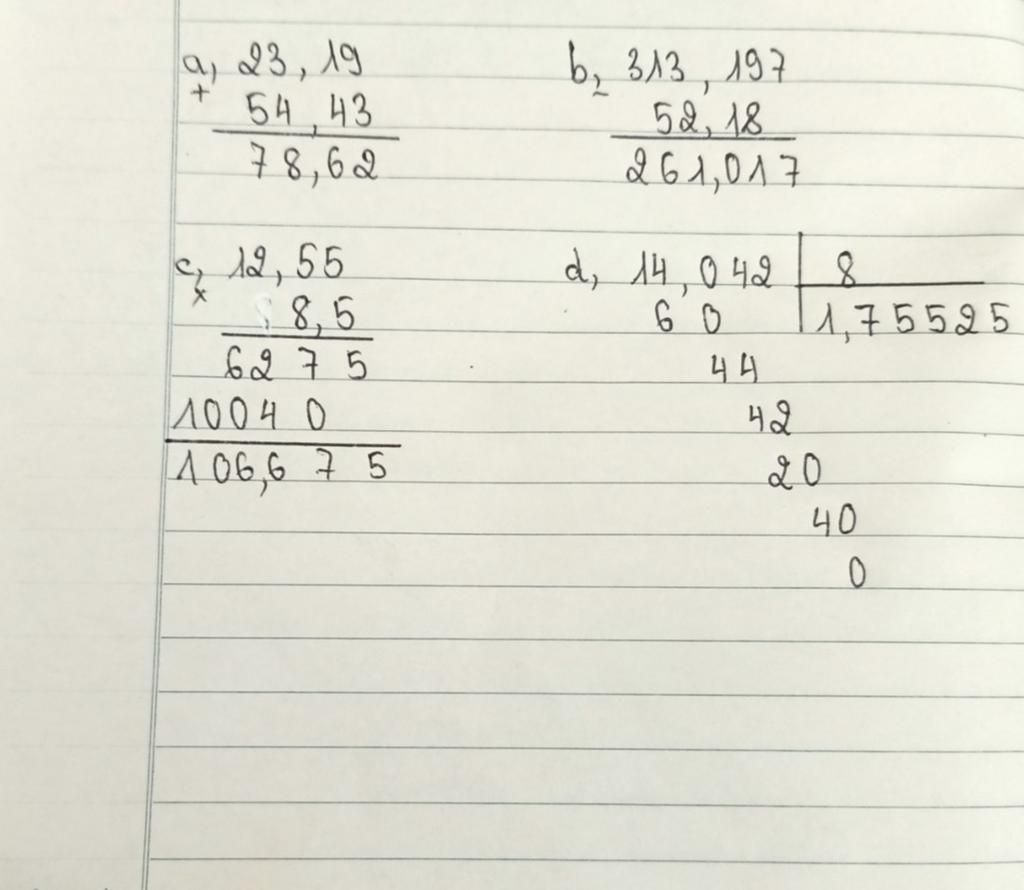 a, 23,19
+
54,43
78,62
b, 313,197
-
52,18
261,017
c, 12,55
x
8,5
6275
10040
106,675
d, 14,042 8
60 1,755525
44
42
20
40
0